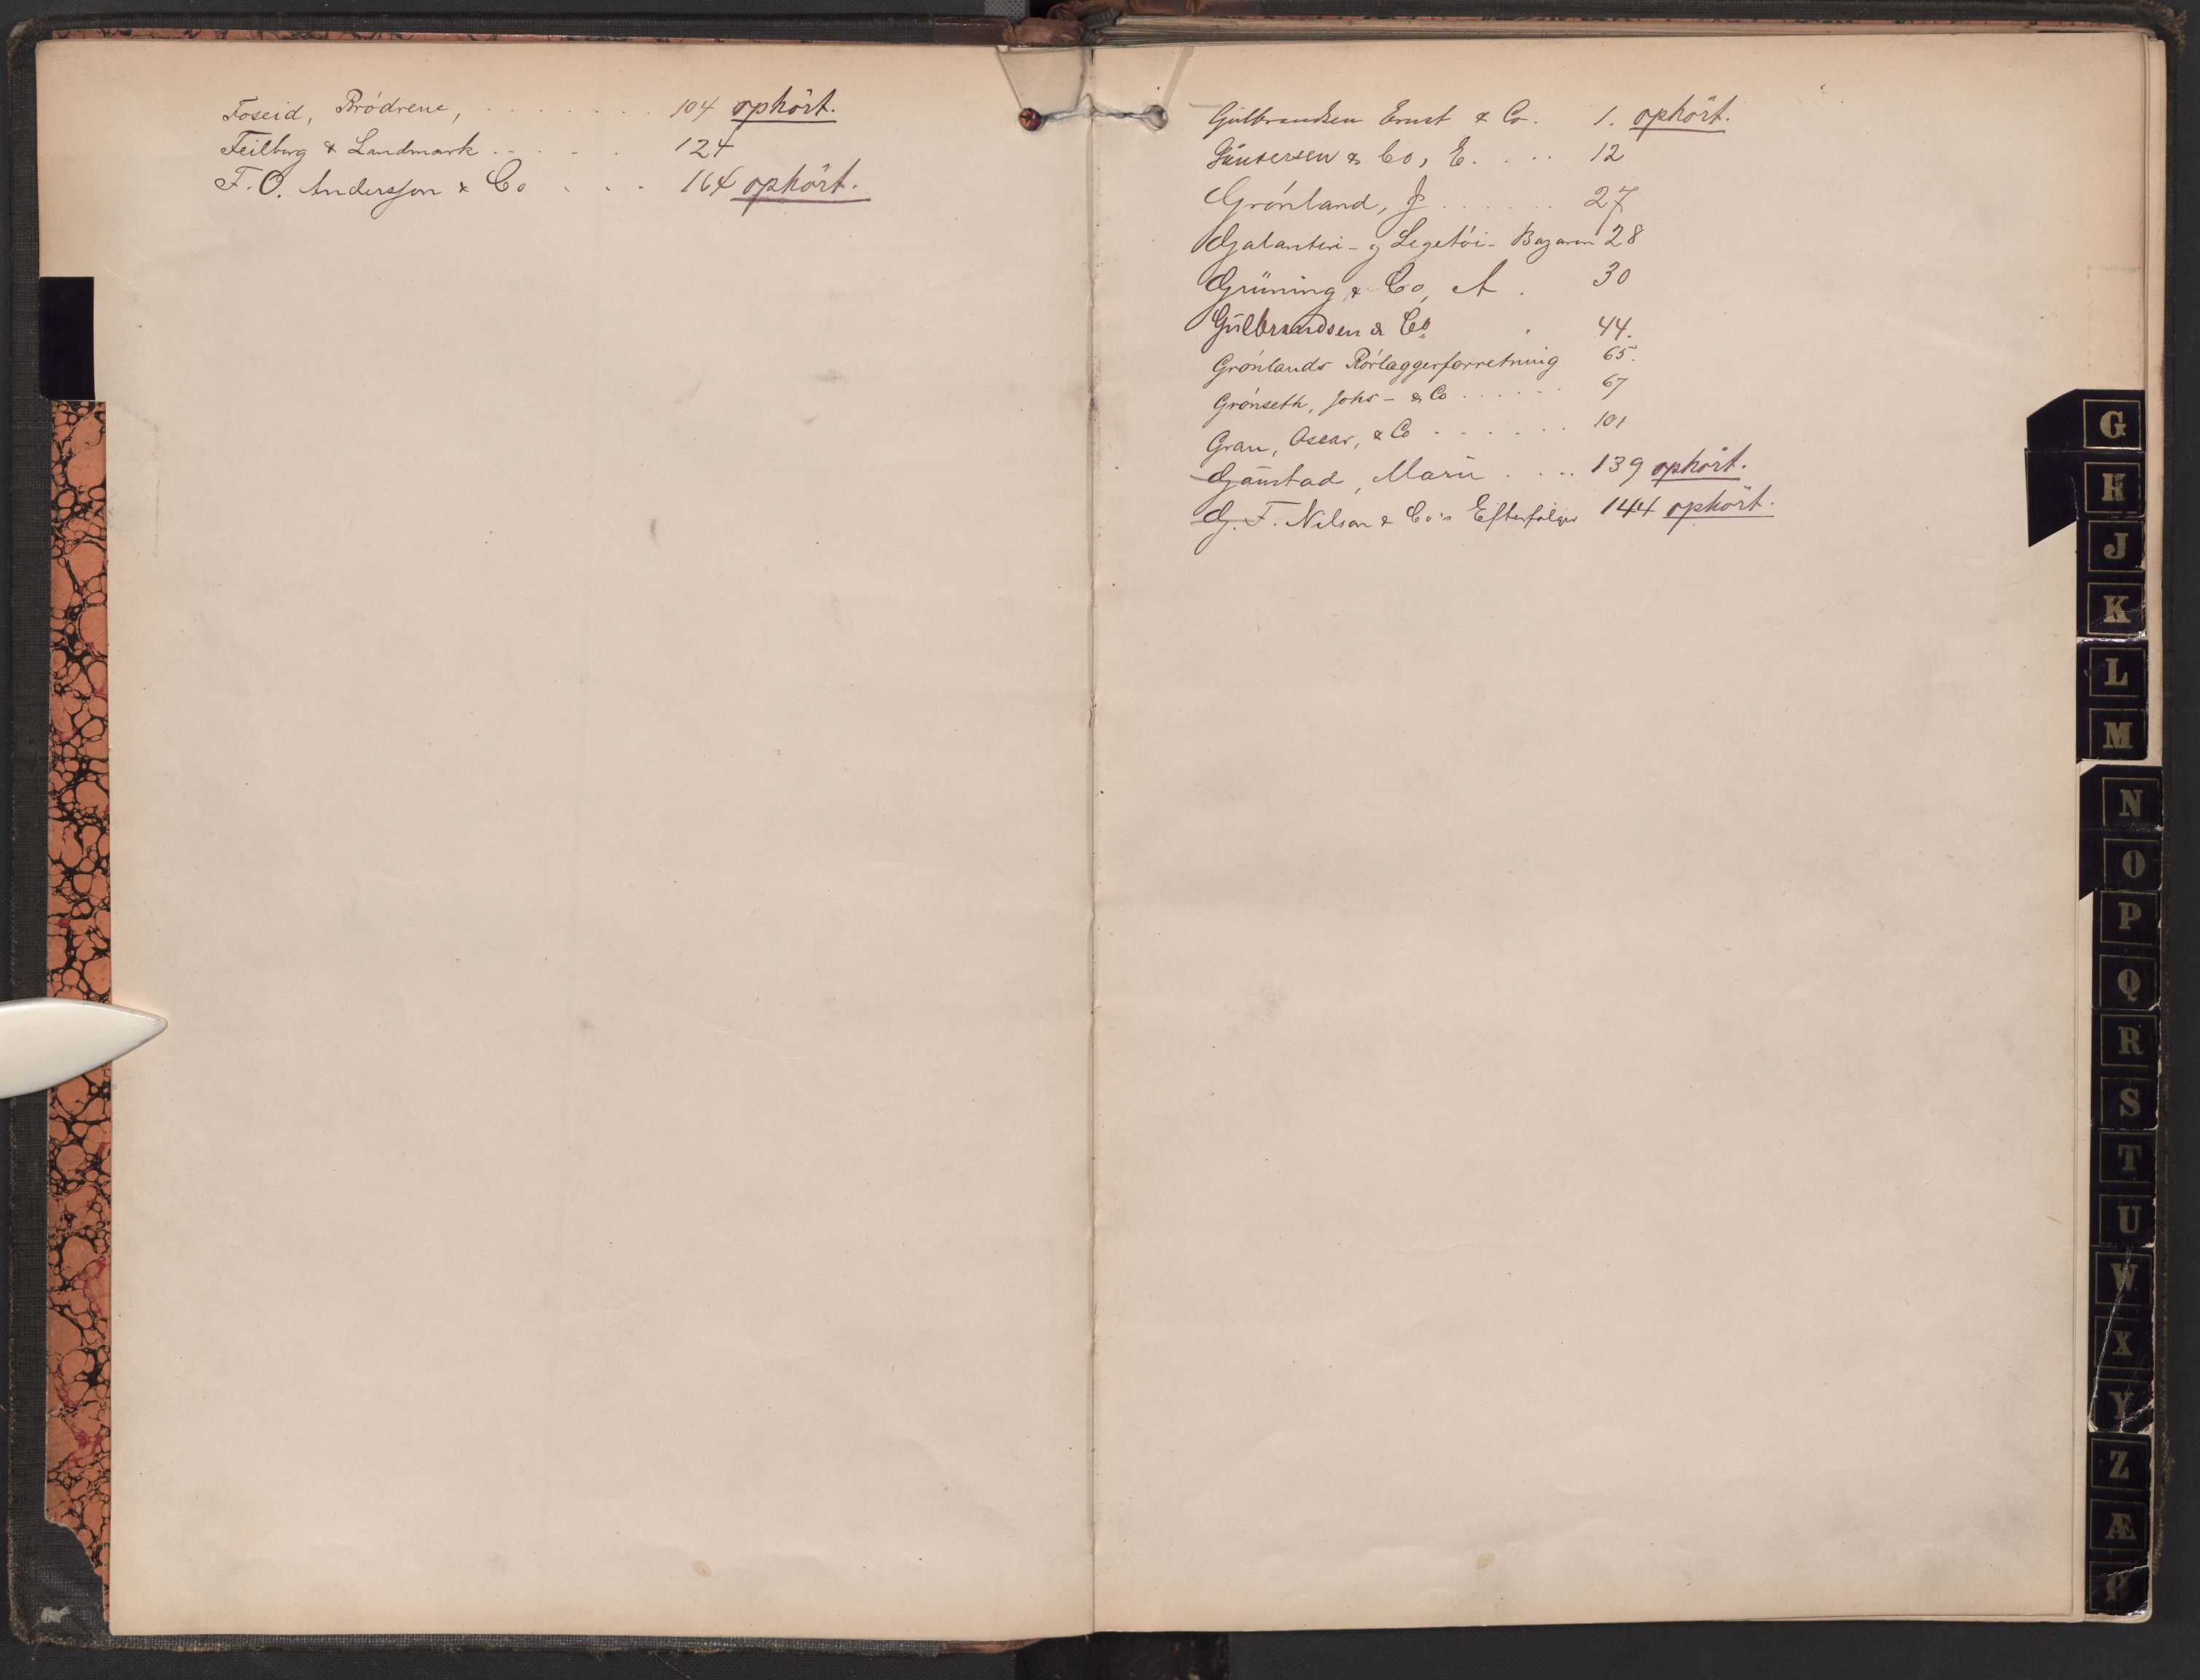 Foseid, Brödrene, . . . . . . . 104 ophört.
Feilberg & Landmark . . . . . 124
F. O. Andersson & Co . . . 164 ophört.
Gulbrandsen Ernst & Co. 1. ophört.
& Co, E. . . . . 12
Grönland, J. . . . . . . 27
Galanteri- og Legetöi- Bazaren 28
Grüning & Co, A . 30
Gulbrandsen & Co . 44.
Grönlands Rörlæggerforretning 65.
Grönseth, Johs - & Co . . . . . . 67
Gran, Oscar, & Co . . . . . . 101
Gaustad, Marie . . . . 139 ophört.
G. F. Nilson & Co's Efterfölger 144 ophört.
G
H
J
K
L
M
N
O
P
Q
R
S
T
U
W
X
Y
Z
Æ
Ø